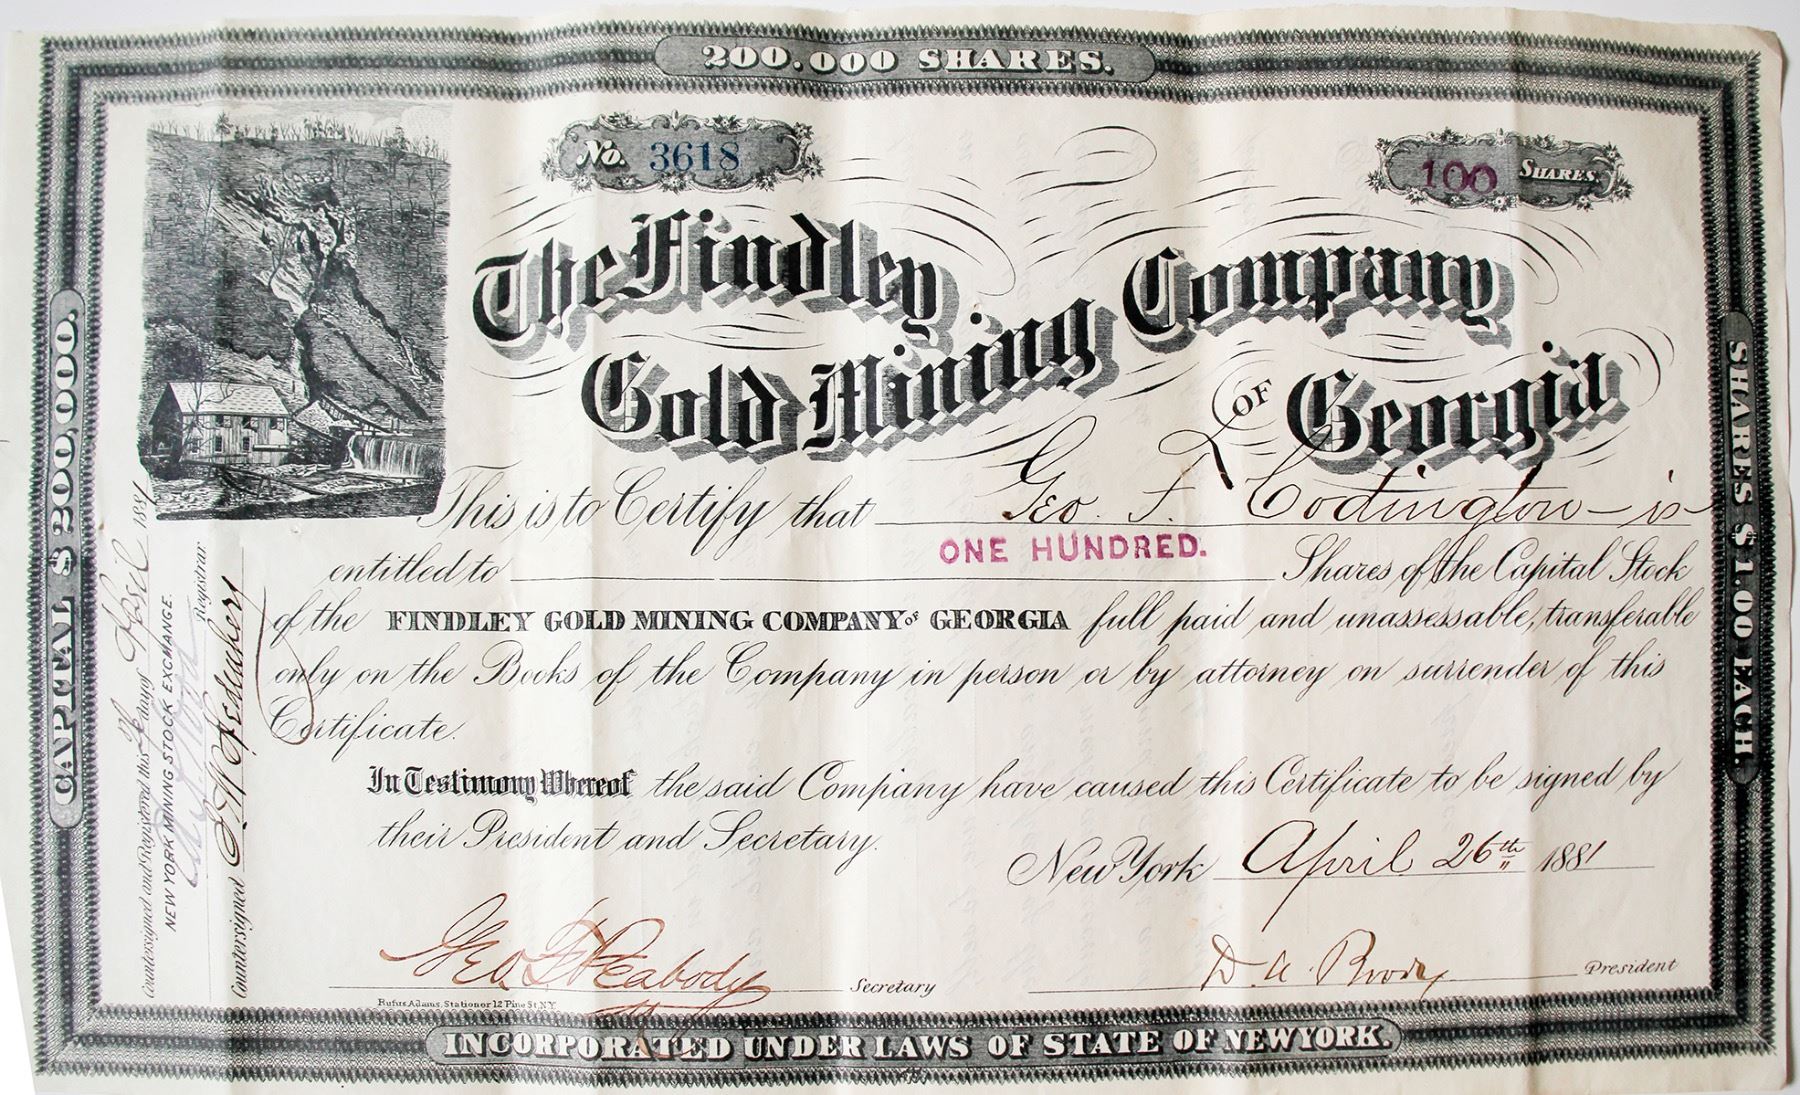 200.000 SHARES.
No. 3618
100 SHARES.
The Findley
Gold Mining
Company
OF Georgia
This is to Certify that Geo. F. Codington - is
entitled to ONE HUNDRED. Shares of the Capital Stock
of the FINDLEY GOLD MINING COMPANY OF GEORGIA full paid and unassessable, transferable
only on the Books of the Company in person or by attorney on surrender of this
Certificate.
In Testimony Whereof the said Company have caused this Certificate to be signed by
their President and Secretary.
New York April 26th 1881
Geo. Peabody Secretary
D. A. President
Rufus Adams, Stationer 12 Pine St. N.Y.
INCORPORATED UNDER LAWS OF STATE OF NEW YORK.
CAPITAL $200,000.
SHARES $1.00 EACH.
Countersigned and Registered this day of April 1881
NEW YORK MINING STOCK EXCHANGE.
Registrar
Countersigned